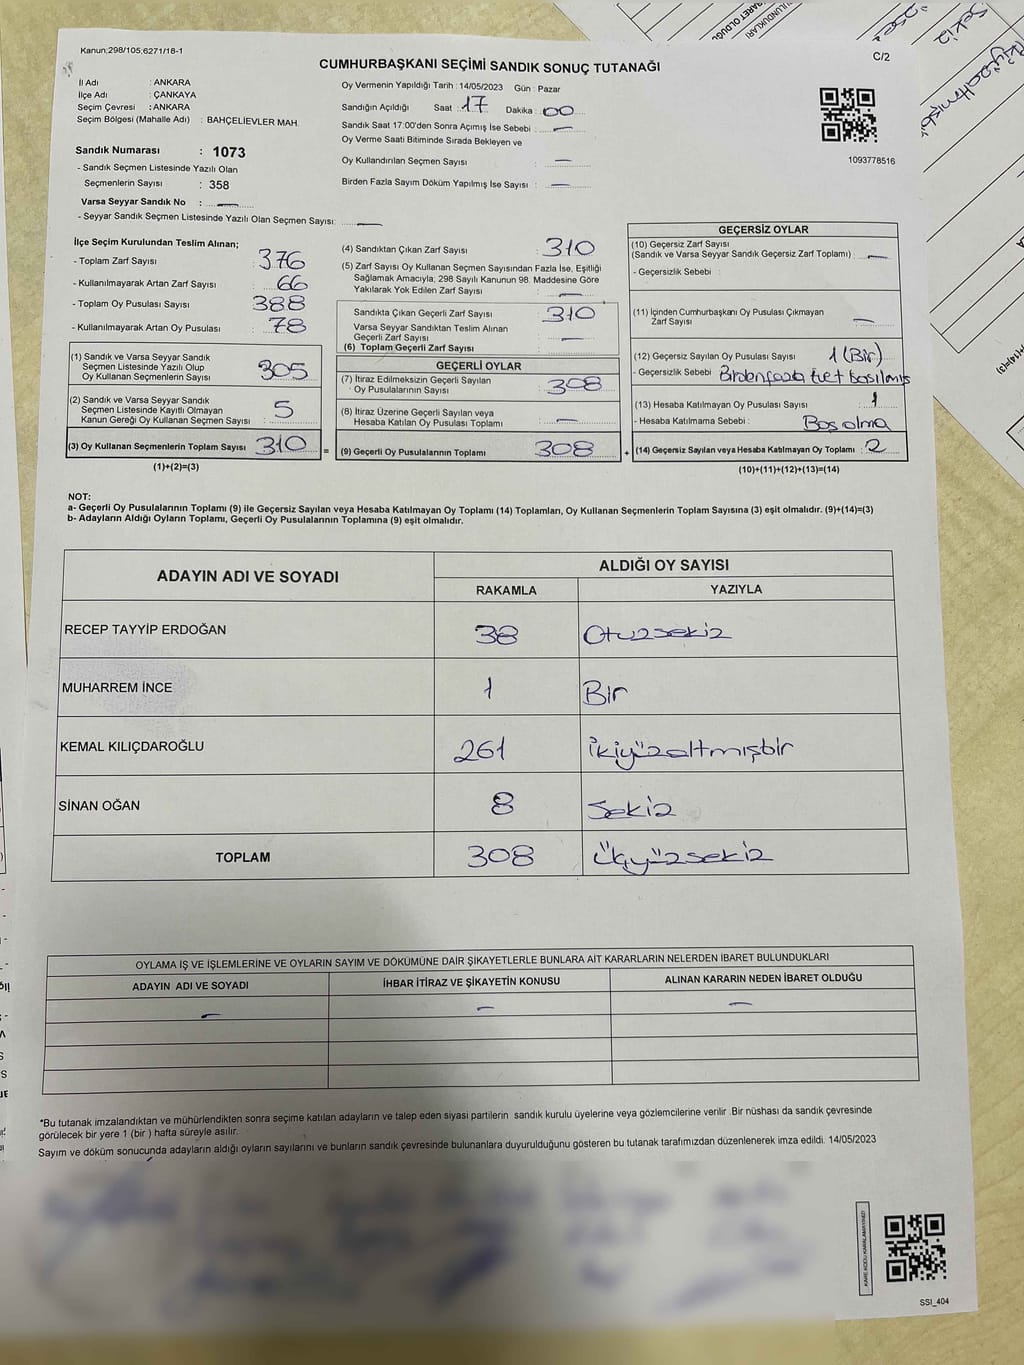 Kanun;298/105,6271/18-1
CUMHURBAŞKANI SEÇİMİ SANDIK SONUÇ TUTANAĞI
C/2
İl Adı : ANKARA
İlçe Adı : ÇANKAYA
Seçim Çevresi : ANKARA
Seçim Bölgesi (Mahalle Adı) : BAHÇELİEVLER MAH.
Sandık Numarası : 1073
- Sandık Seçmen Listesinde Yazılı Olan
Seçmenlerin Sayısı : 358
Varsa Seyyar Sandık No : —
- Seyyar Sandık Seçmen Listesinde Yazılı Olan Seçmen Sayısı: —
Oy Vermenin Yapıldığı Tarih : 14/05/2023 Gün : Pazar
Sandığın Açıldığı Saat : 17 Dakika : 00
Sandık Saat 17:00'den Sonra Açımış İse Sebebi : —
Oy Verme Saati Bitiminde Sırada Bekleyen ve
Oy Kullandırılan Seçmen Sayısı : —
Birden Fazla Sayım Döküm Yapılmış İse Sayısı : —
1093778516
İlçe Seçim Kurulundan Teslim Alınan;
- Toplam Zarf Sayısı : 376
- Kullanılmayarak Artan Zarf Sayısı : 66
- Toplam Oy Pusulası Sayısı : 388
- Kullanılmayarak Artan Oy Pusulası : 78
(1) Sandık ve Varsa Seyyar Sandık
Seçmen Listesinde Yazılı Olup
Oy Kullanan Seçmenlerin Sayısı : 305
(2) Sandık ve Varsa Seyyar Sandık
Seçmen Listesinde Kayıtlı Olmayan
Kanun Gereği Oy Kullanan Seçmen Sayısı : 5
(3) Oy Kullanan Seçmenlerin Toplam Sayısı : 310
(1)+(2)=(3)
(4) Sandıktan Çıkan Zarf Sayısı : 310
(5) Zarf Sayısı Oy Kullanan Seçmen Sayısından Fazla İse, Eşitliği
Sağlamak Amacıyla, 298 Sayılı Kanunun 98. Maddesine Göre
Yakılarak Yok Edilen Zarf Sayısı : —
Sandıkta Çıkan Geçerli Zarf Sayısı : 310
Varsa Seyyar Sandıktan Teslim Alınan
Geçerli Zarf Sayısı : —
(6) Toplam Geçerli Zarf Sayısı :
GEÇERLİ OYLAR
(7) İtiraz Edilmeksizin Geçerli Sayılan
Oy Pusulalarının Sayısı : 308
(8) İtiraz Üzerine Geçerli Sayılan veya
Hesaba Katılan Oy Pusulası Toplamı : —
= (9) Geçerli Oy Pusulalarının Toplamı : 308 +
GEÇERSİZ OYLAR
(10) Geçersiz Zarf Sayısı
(Sandık ve Varsa Seyyar Sandık Geçersiz Zarf Toplamı) : —
- Geçersizlik Sebebi :
(11) İçinden Cumhurbaşkanı Oy Pusulası Çıkmayan
Zarf Sayısı : —
(12) Geçersiz Sayılan Oy Pusulası Sayısı : 1 (Bir)
- Geçersizlik Sebebi : Birden fazla tret basılmış
(13) Hesaba Katılmayan Oy Pusulası Sayısı : 1
- Hesaba Katılmama Sebebi : Boş olma
(14) Geçersiz Sayılan veya Hesaba Katılmayan Oy Toplamı : 2
(10)+(11)+(12)+(13)=(14)
NOT:
a- Geçerli Oy Pusulalarının Toplamı (9) ile Geçersiz Sayılan veya Hesaba Katılmayan Oy Toplamı (14) Toplamları, Oy Kullanan Seçmenlerin Toplam Sayısına (3) eşit olmalıdır. (9)+(14)=(3)
b- Adayların Aldığı Oyların Toplamı, Geçerli Oy Pusulalarının Toplamına (9) eşit olmalıdır.
ADAYIN ADI VE SOYADI ALDIĞI OY SAYISI
RAKAMLA YAZIYLA
RECEP TAYYİP ERDOĞAN 38 Otuzsekiz
MUHARREM İNCE 1 Bir
KEMAL KILIÇDAROĞLU 261 İkiyüzaltmışbir
SİNAN OĞAN 8 Sekiz
TOPLAM 308 Üçyüzsekiz
OYLAMA İŞ VE İŞLEMLERİNE VE OYLARIN SAYIM VE DÖKÜMÜNE DAİR ŞİKAYETLERLE BUNLARA AİT KARARLARIN NELERDEN İBARET BULUNDUKLARI
ADAYIN ADI VE SOYADI İHBAR İTİRAZ VE ŞİKAYETİN KONUSU ALINAN KARARIN NEDEN İBARET OLDUĞU
— — —
*Bu tutanak imzalandıktan ve mühürlendikten sonra seçime katılan adayların ve talep eden siyasi partilerin sandık kurulu üyelerine veya gözlemcilerine verilir .Bir nüshası da sandık çevresinde
görülecek bir yere 1 (bir ) hafta süreyle asılır.
Sayım ve döküm sonucunda adayların aldığı oyların sayılarını ve bunların sandık çevresinde bulunanlara duyurulduğunu gösteren bu tutanak tarafımızdan düzenlenerek imza edildi. 14/05/2023
KARE KODU KARALAMAYINIZ!
SSI_404